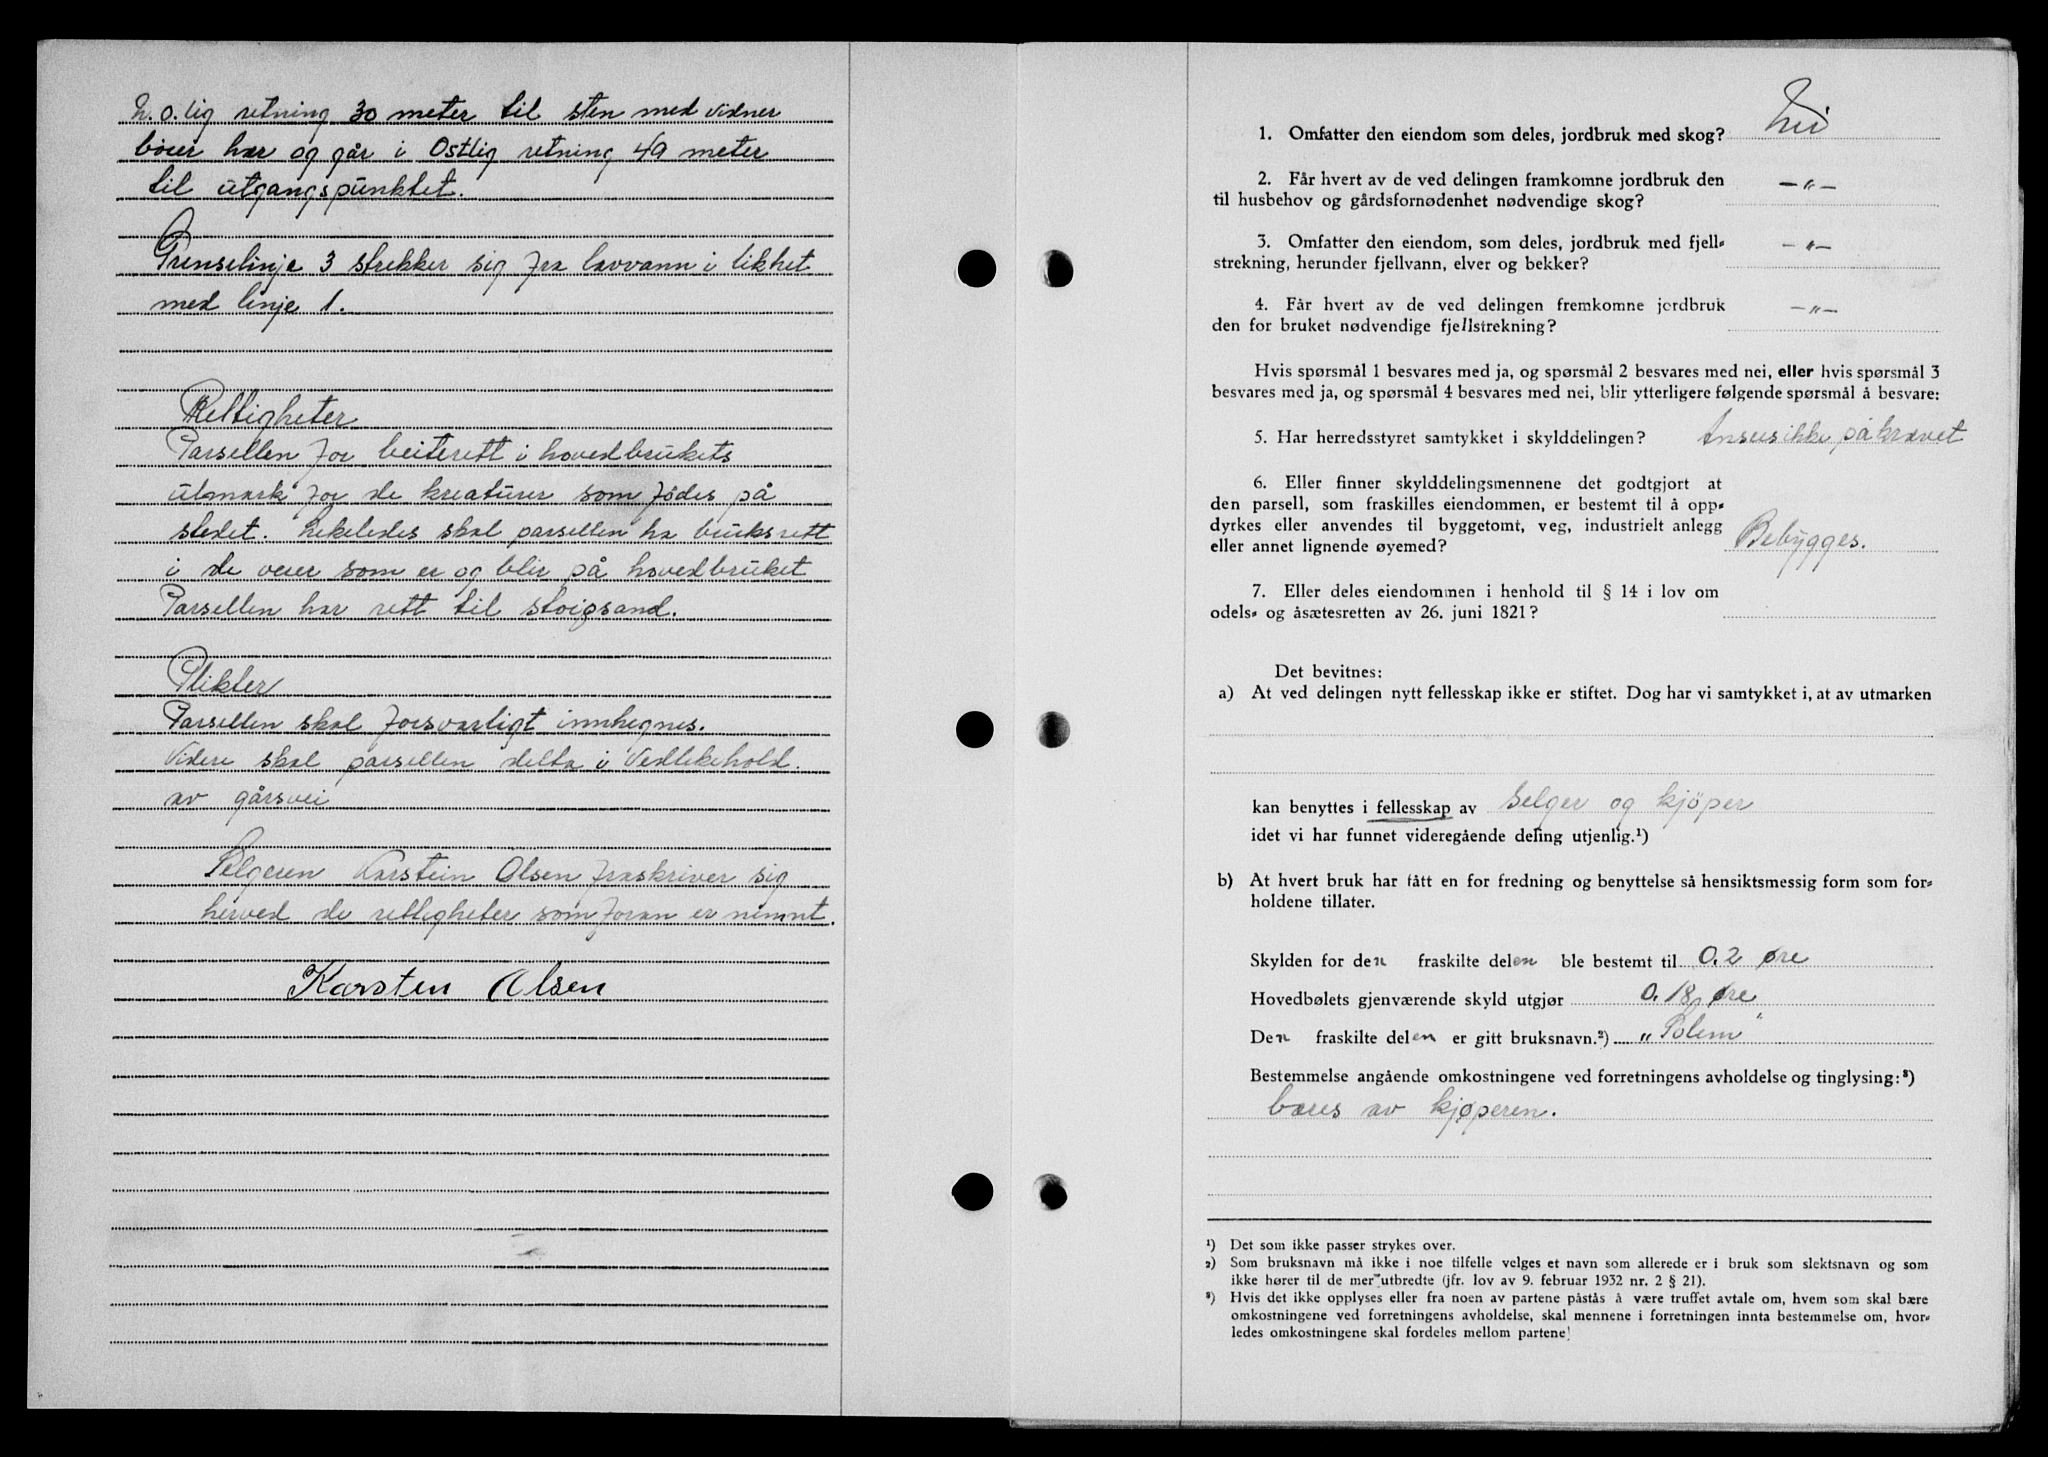 N. o. lig retning 30 meter til sten med vidner
böier her og går i Ostlig retning 49 meter
til utgangspunktet.
Grenselinje 3 strekker sig fra lavvann i likhet
med linje 1.
Rettigheter
Parsellen for beiterett i hovedbrukets
utmark for de kreaturer som födes på
stedet. Likeledes skal parsellen ha bruksrett
i de veier som er og blir på hovedbruket
Parsellen har rett til stöigsand.
Plikter
Parsellen skal forsvarligt innhegnes.
Videre skal parsellen delta i Vedlikehold.
av gårsvei
Selgeren Karstein Olsen fraskriver sig
herved de rettigheter som foran er nemnt.
Karsten Olsen
1. Omfatter den eiendom som deles, jordbruk med skog? Nei
2. Får hvert av de ved delingen framkomne jordbruk den
til husbehov og gårdsfornødenhet nødvendige skog? —"—
3. Omfatter den eiendom, som deles, jordbruk med fjell-
strekning, herunder fjellvann, elver og bekker? —"—
4. Får hvert av de ved delingen fremkomne jordbruk
den for bruket nødvendige fjellstrekning? —"—
Hvis spørsmål 1 besvares med ja, og spørsmål 2 besvares med nei, eller hvis spørsmål 3
besvares med ja, og spørsmål 4 besvares med nei, blir ytterligere følgende spørsmål å besvare:
5. Har herredsstyret samtykket i skylddelingen? Ansees ikke påkrævet
6. Eller finner skylddelingsmennene det godtgjort at
den parsell, som fraskilles eiendommen, er bestemt til å opp-
dyrkes eller anvendes til byggetomt, veg, industrielt anlegg
eller annet lignende øyemed? Bebygges.
7. Eller deles eiendommen i henhold til § 14 i lov om
odels- og åsætesretten av 26. juni 1821?
Det bevitnes:
a) At ved delingen nytt fellesskap ikke er stiftet. Dog har vi samtykket i, at av utmarken
kan benyttes i fellesskap av Selger og kjöper
idet vi har funnet videregående deling utjenlig.¹)
b) At hvert bruk har fått en for fredning og benyttelse så hensiktsmessig form som for-
holdene tillater.
Skylden for den fraskilte delen ble bestemt til 0.2 øre
Hovedbølets gjenværende skyld utgjør 0.18 Øre
Den fraskilte delen er gitt bruksnavn.²) „Solem"
Bestemmelse angående omkostningene ved forretningens avholdelse og tinglysing:³)
bæres av kjøperen.
¹) Det som ikke passer strykes over.
²) Som bruksnavn må ikke i noe tilfelle velges et navn som allerede er i bruk som slektsnavn og som
ikke hører til de mer utbredte (jfr. lov av 9. februar 1932 nr. 2 § 21).
³) Hvis det ikke opplyses eller fra noen av partene påstås å være truffet avtale om, hvem som skal bære
omkostningene ved forretningens avholdelse, skal mennene i forretningen innta bestemmelse om, hvor-
ledes omkostningene skal fordeles mellom partene!